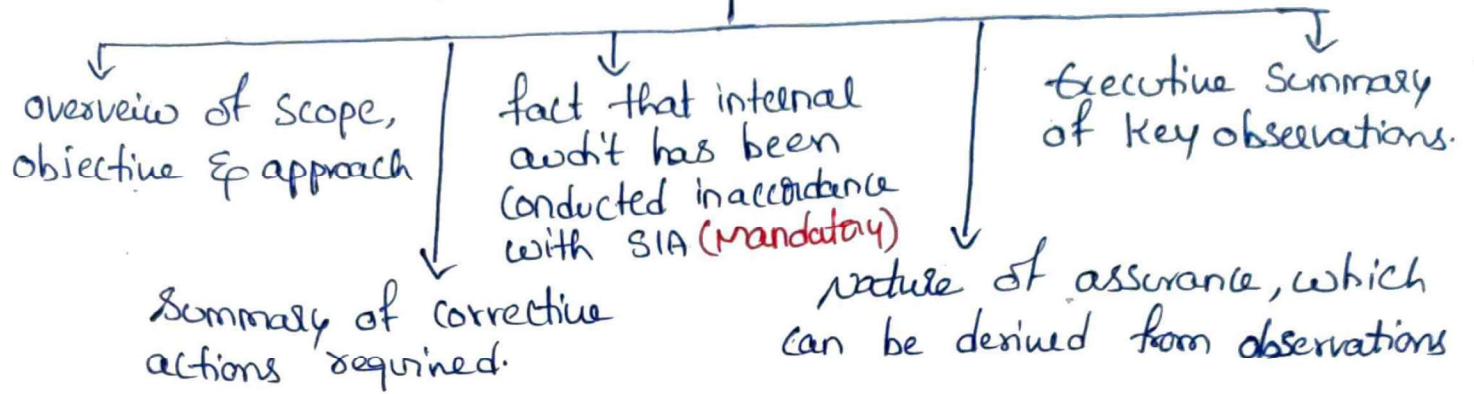 overveiw of scope,
objective & approach
Summary of corrective
actions required.
fact that internal
audit has been
conducted in accordance
with SIA (Mandatory)
Nature of assurance, which
can be derived from observations
Executive Summary
of key observations.